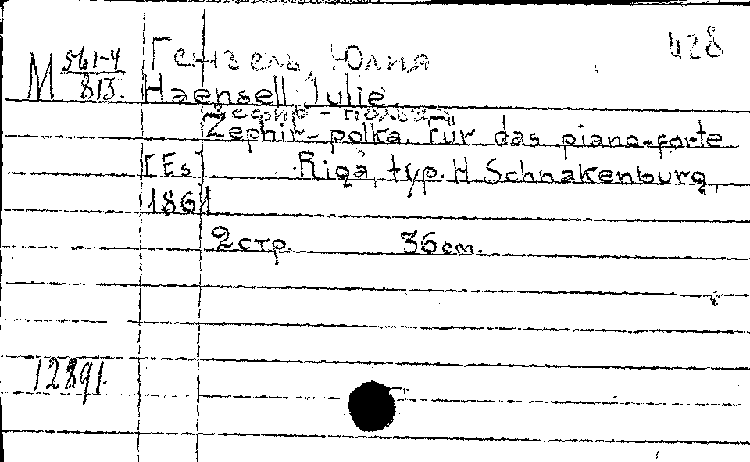 Гензель, Юлия 428
М 561-4/813.
Haensell Julie.
Зефир - полька
Zephir-polka für das piano-forte
[Es] Riga, typ. H Schnakenburg,
1861
2 стр. 36 см.
12891.